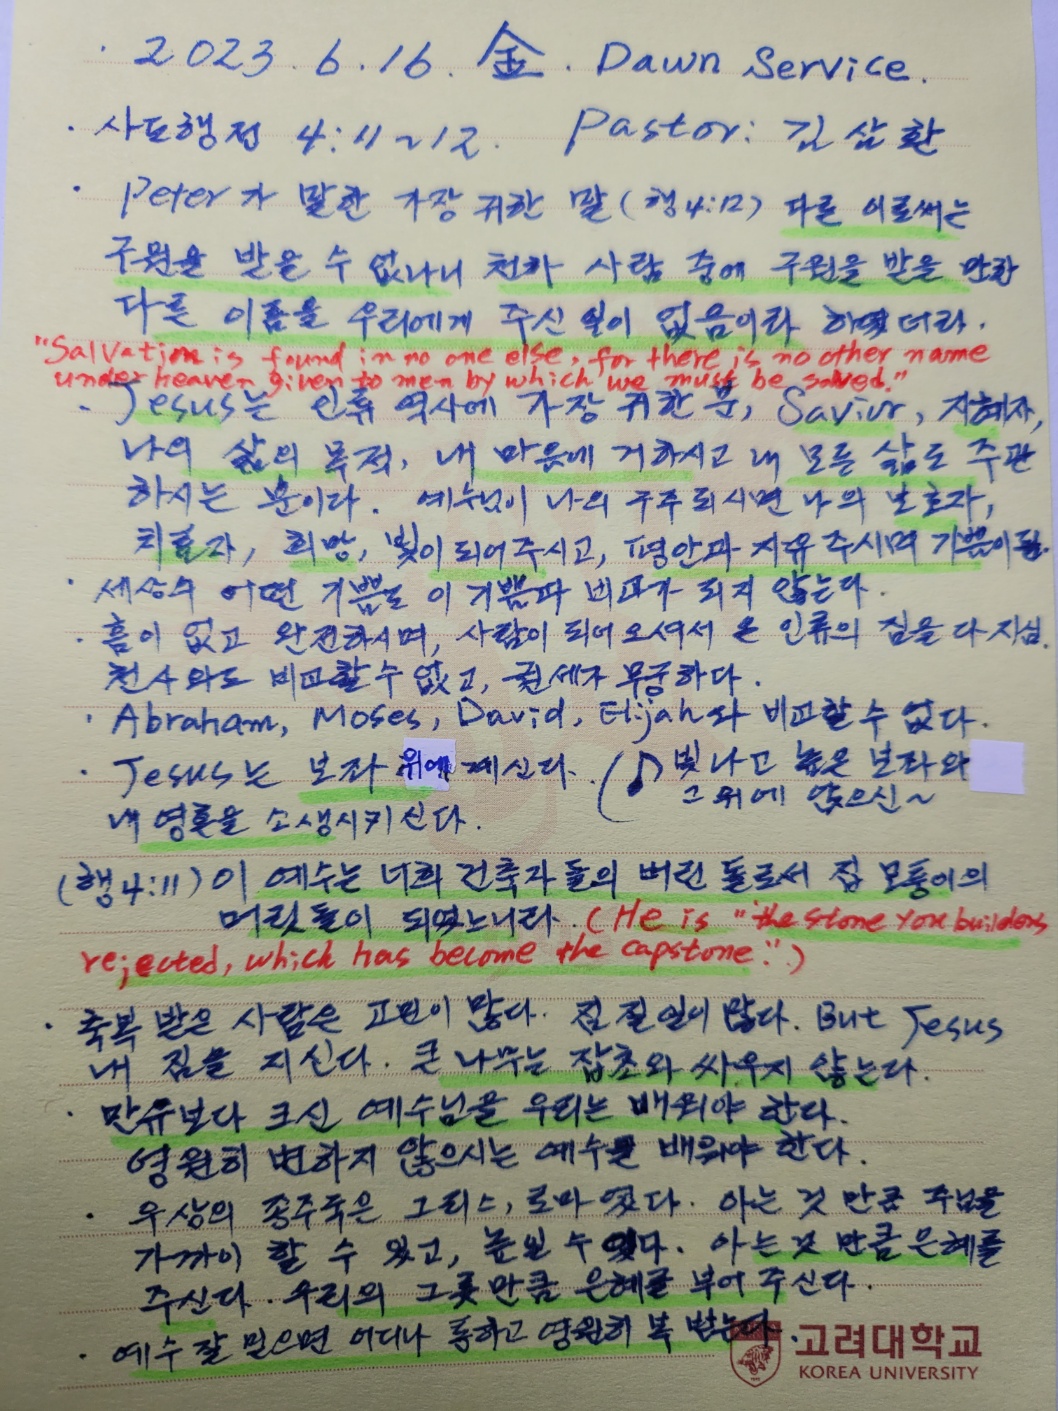 · 2023. 6. 16. 金. Dawn Service.
· 사도행전 4:11~12. Pastor: 김삼환
· Peter가 말한 가장 귀한 말(행4:12) 다른 이로써는
구원을 받을 수 없나니 천하 사람 중에 구원을 받을 만한
다른 이름을 우리에게 주신 일이 없음이라 하였더라.
"Salvation is found in no one else, for there is no other name
under heaven given to men by which we must be saved."
· Jesus는 인류 역사에 가장 귀한 분, Savior, 지혜자,
나의 삶의 목적, 내 마음에 거하시고 내 모든 삶도 주관
하시는 분이다. 예수님이 나의 구주 되시면 나의 보호자,
치료자, 희망, 빛이 되어주시고, 평안과 자유 주시며 기쁨이 됨.
· 세상의 어떤 기쁨도 이 기쁨과 비교가 되지 않는다.
· 흠이 없고 완전하시며, 사람이 되어 오셔서 온 인류의 짐을 다 지심.
천사와도 비교할 수 없고, 권세가 무궁하다.
· Abraham, Moses, David, Elijah와 비교할 수 없다.
· Jesus는 보좌 위에 계신다. (♪ 빛나고 높은 보좌와
그 위에 앉으신~
내 영혼을 소생시키신다.
(행4:11) 이 예수는 너희 건축자들의 버린 돌로서 집 모퉁이의
머릿돌이 되었느니라. (He is "the stone you builders
rejected, which has become the capstone.")
· 축복 받은 사람은 고민이 많다. 짐 질 일이 많다. But Jesus
내 짐을 지신다. 큰 나무는 잡초와 싸우지 않는다.
· 만유보다 크신 예수님을 우리는 배워야 한다.
영원히 변하지 않으시는 예수를 배워야 한다.
· 우상의 종주국은 그리스, 로마였다. 아는 것 만큼 주님을
가까이 할 수 있고, 높일 수 있다. 아는 것 만큼 은혜를
주신다. 우리의 그릇만큼 은혜를 부어 주신다.
· 예수 잘 믿으면 어디나 통하고 영원히 복 받는다.
고려대학교
KOREA UNIVERSITY